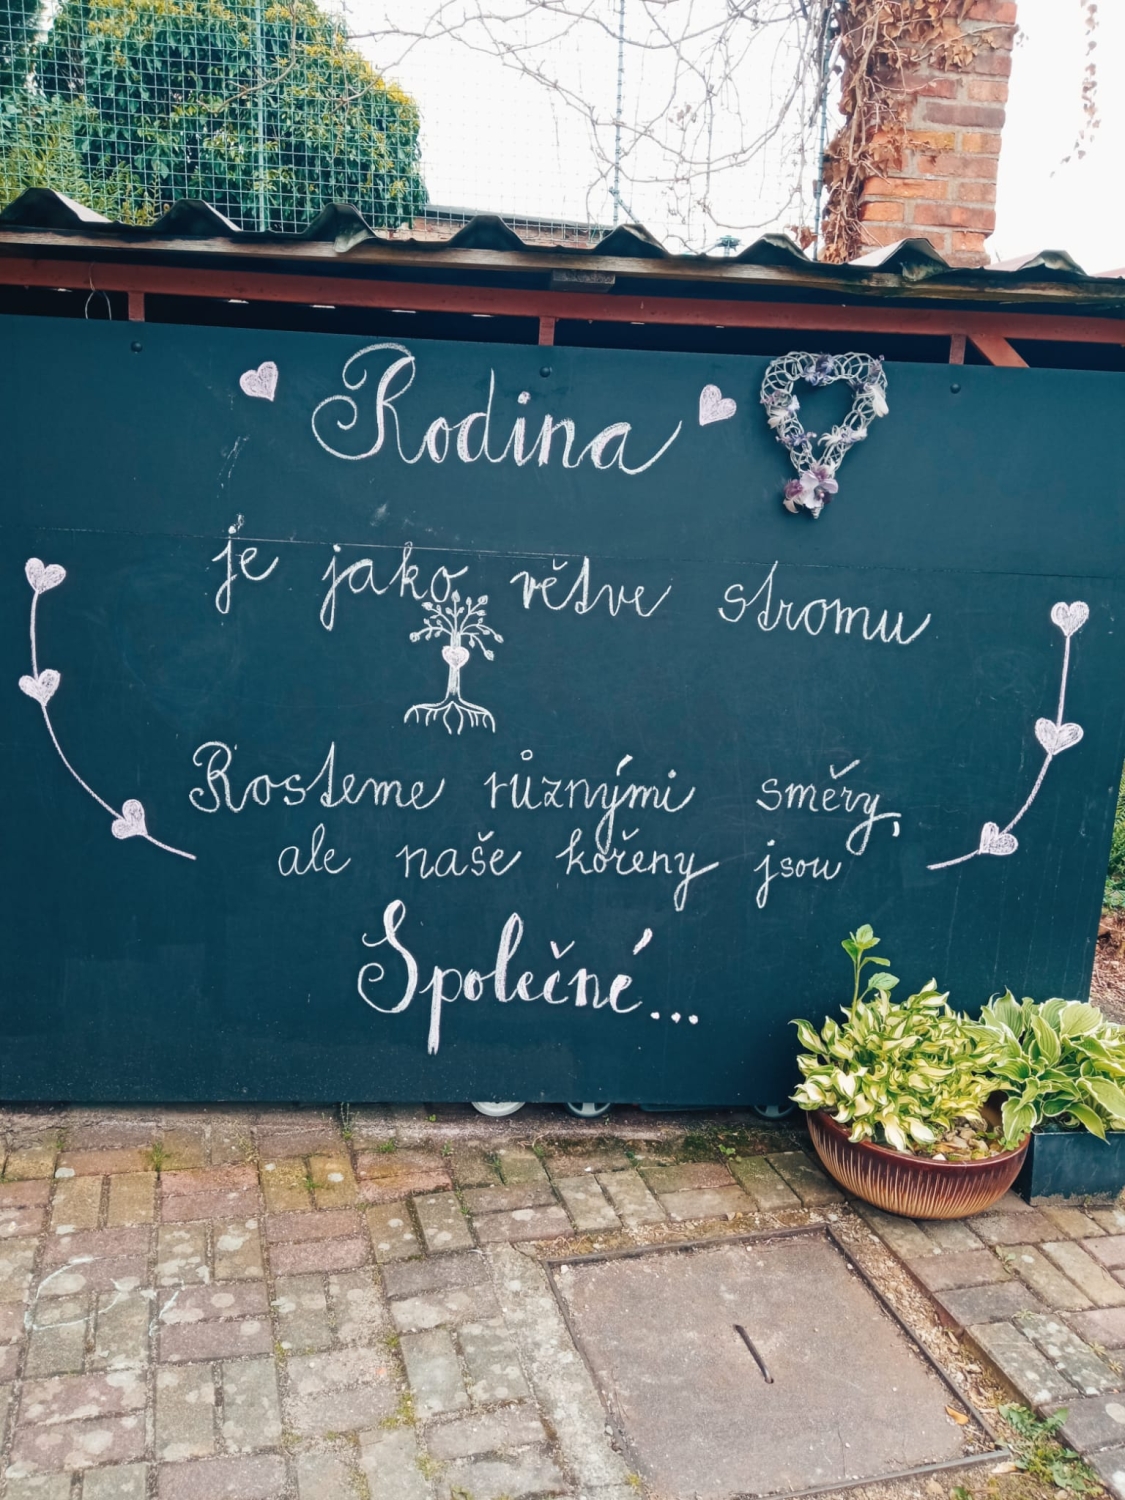 Rodina
je jako větve stromu
Rosteme různými směry,
ale naše kořeny jsou
Společné...